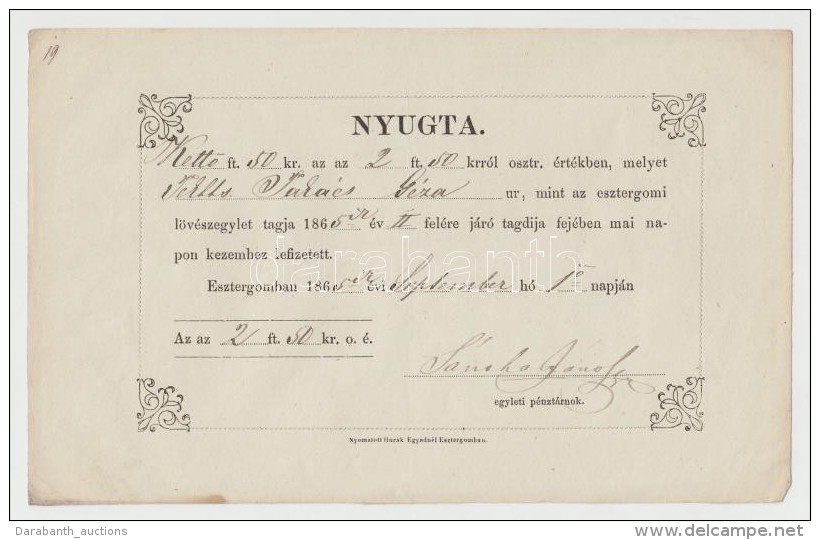 19
NYUGTA.
Kettő ft. 50 kr. az az 2 ft. 50 krról osztr. értékben, melyet
Tktts. Takács Géza ur, mint az esztergomi
lövészegylet tagja 1865ik év II felére járó tagdija fejében mai na-
pon kezemhez lefizetett.
Esztergomban 1865ik évi September hó 1ő napján
Az az 2 ft. 50 kr. o. é.
János
egyleti pénztárnok.
Nyomatott Horák Egyednél Esztergomban.
darabanth
Darabanth_auctions
www.delcampe.net